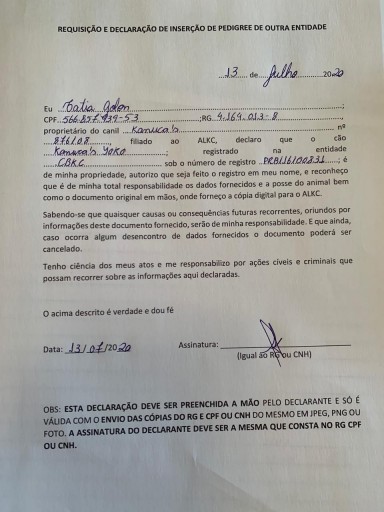 REQUISIÇÃO E DECLARAÇÃO DE INSERÇÃO DE PEDIGREE DE OUTRA ENTIDADE
13 de Julho 2020
Eu Katia Golon ;
CPF 566.857.939-53 ;RG 4.169.013-8 ,
proprietário do canil Kanuca's nº
876/08 , filiado ao ALKC, declaro que o cão
Kanuca's YORO ; registrado na entidade
CBKC sob o número de registro PRB/16/00831 ; é
de minha propriedade, autorizo que seja feito o registro em meu nome, e reconheço
que é de minha total responsabilidade os dados fornecidos e a posse do animal bem
como o documento original em mãos, onde forneço a cópia digital para o ALKC.
Sabendo-se que quaisquer causas ou consequências futuras recorrentes, oriundos por
informações deste documento fornecido, serão de minha responsabilidade. E que ainda,
caso ocorra algum desencontro de dados fornecidos o documento poderá ser
cancelado.
Tenho ciência dos meus atos e me responsabilizo por ações cíveis e criminais que
possam recorrer sobre as informações aqui declaradas.
O acima descrito é verdade e dou fé
Data: 13/07/2020 Assinatura:
(Igual ao RG ou CNH)
OBS: ESTA DECLARAÇÃO DEVE SER PREENCHIDA A MÃO PELO DECLARANTE E SÓ É
VÁLIDA COM O ENVIO DAS CÓPIAS DO RG E CPF OU CNH DO MESMO EM JPEG, PNG OU
FOTO. A ASSINATURA DO DECLARANTE DEVE SER A MESMA QUE CONSTA NO RG CPF
OU CNH.